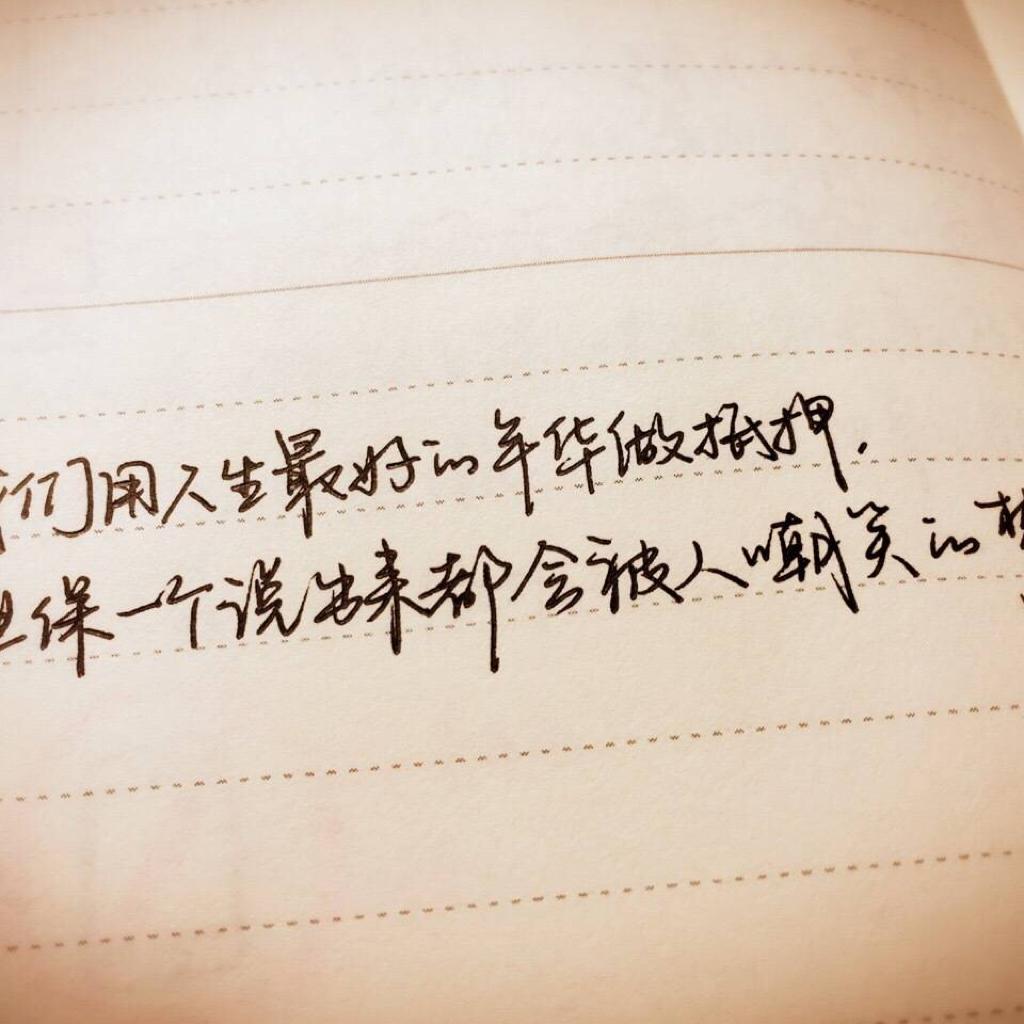 我们用人生最好的年华做抵押.
担保一个说出来都会被人嘲笑的梦